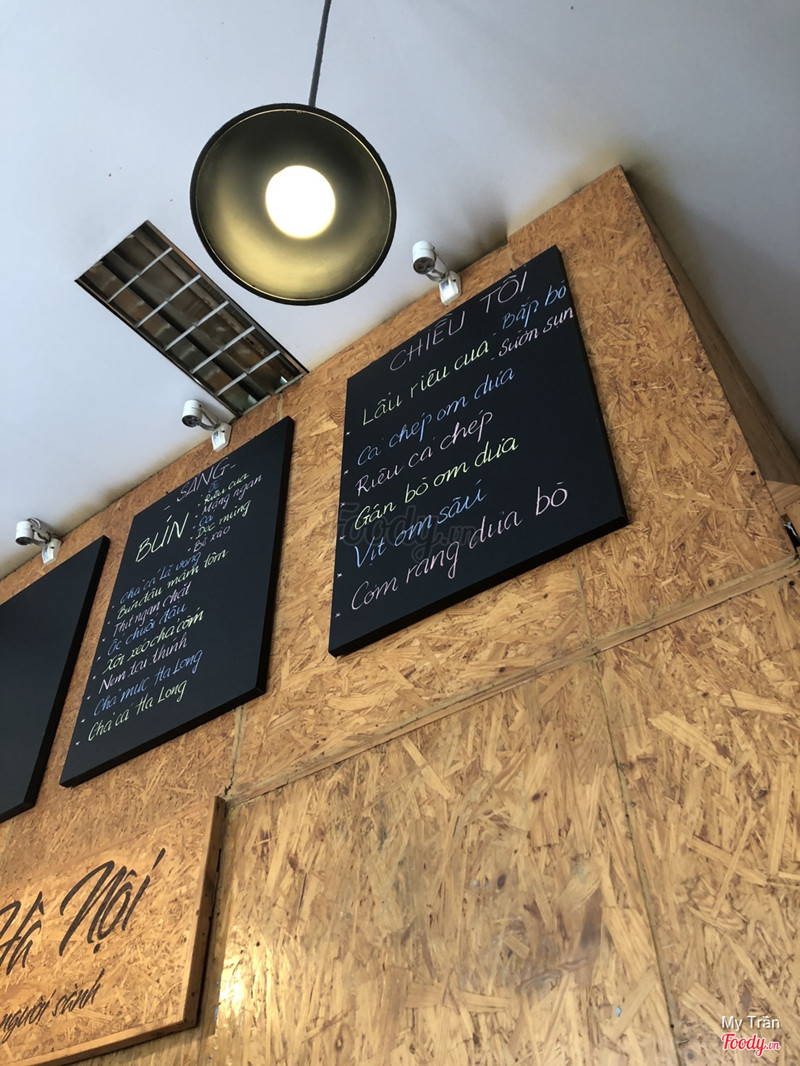 CHIỀU TỐI
Lẩu riêu cua - Bắp bò
- Sườn sụn
Cá chép om dưa
Riêu cá chép
Gân bò om dưa
Vịt om sấu
Cơm rang dưa bò
- SÁNG -
BÚN
- Riêu cua
- Măng ngan
- Cá
- Dọc mùng
- Bò xào
Chả cá Lã Vọng
Bún đậu mắm tôm
Thịt ngan chặt
Ốc chuối đậu
Xôi xéo chả cốm
Nem tai thính
Chả mực Hạ Long
Chả cá Hạ Long
Hà Nội
người sành
Foody.vn
My Trần
Foody.vn